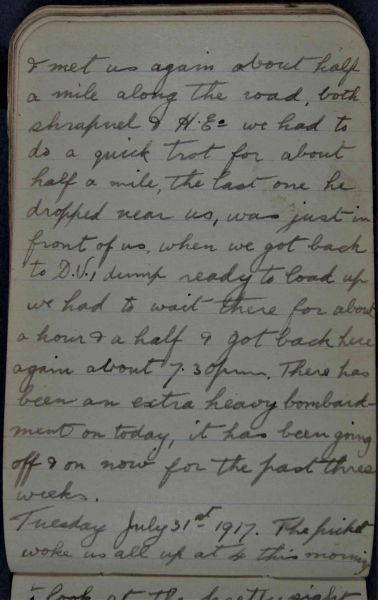 & met us again about half
a mile along the road, both
shrapnel & H.Es we had to
do a quick trot for about
half a mile, the last one he
dropped near us, was just in
front of us, when we got back
to D.V., dump ready to load up
we had to wait there for about
a hour & a half & got back here
again about 7.30pm. There has
been an extra heavy bombard-
ment on today, it has been going
off & on now for the past three
weeks.
Tuesday July 31st 1917. The picket
woke us all up at 4 this morning
look at the pretty sight